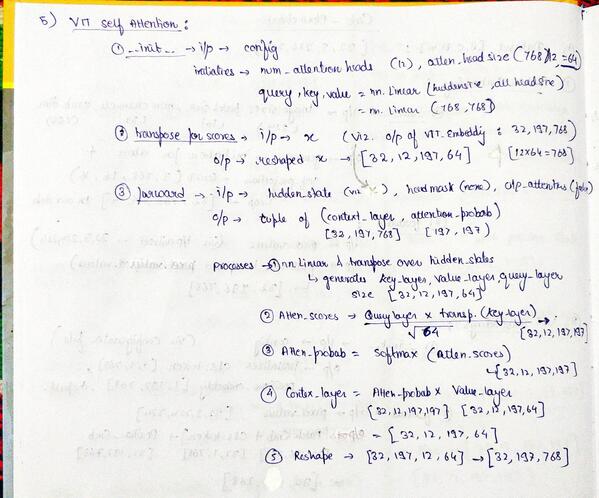 5) ViT self Attention :
① __init__ → i/p → config
initiaties → num_attention heads (12), atten_head size (768/12 = 64)
query, key, value = nn.Linear (hiddensize, all head size)
= nn. Linear (768, 768)
② transpose for scores → i/p → x (viz. o/p of ViT. embeddig : 32, 197, 768)
o/p → reshaped x → [32, 12, 197, 64] [12x64 = 768]
③ forward → i/p → hidden_state (viz x), head mask (none), o/p_attentions (false)
o/p → tuple of (context_layer, attention_probab)
[32, 197, 768] [197, 197]
processes → ① nn.Linear & transpose over hidden_states
↳ generates key_layer, value_layer, query_layer
size [32, 12, 197, 64]
② Atten_scores → Query layer x transp. (key layer) →
√64 [32, 12, 197, 197]
③ Atten_probab = softmax (Atten_scores)
↳ [32, 12, 197, 197]
④ Contex_layer = Atten_probab x Value_layer
[32, 12, 197, 197] [32, 12, 197, 64]
= [32, 12, 197, 64]
⑤ Reshape → [32, 197, 12, 64] → [32, 197, 768]